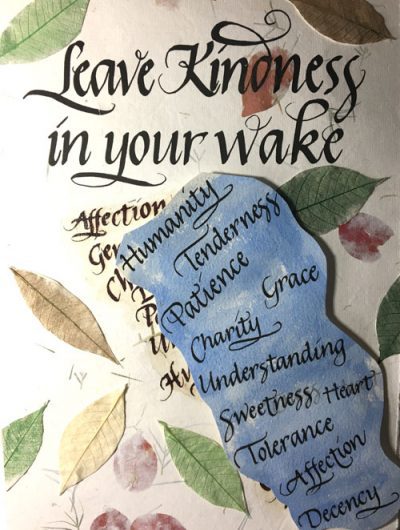 Leave Kindness
in your wake
Affection
Humanity
Tenderness
Patience
Grace
Charity
Understanding
Sweetness Heart
Tolerance
Affection
Decency